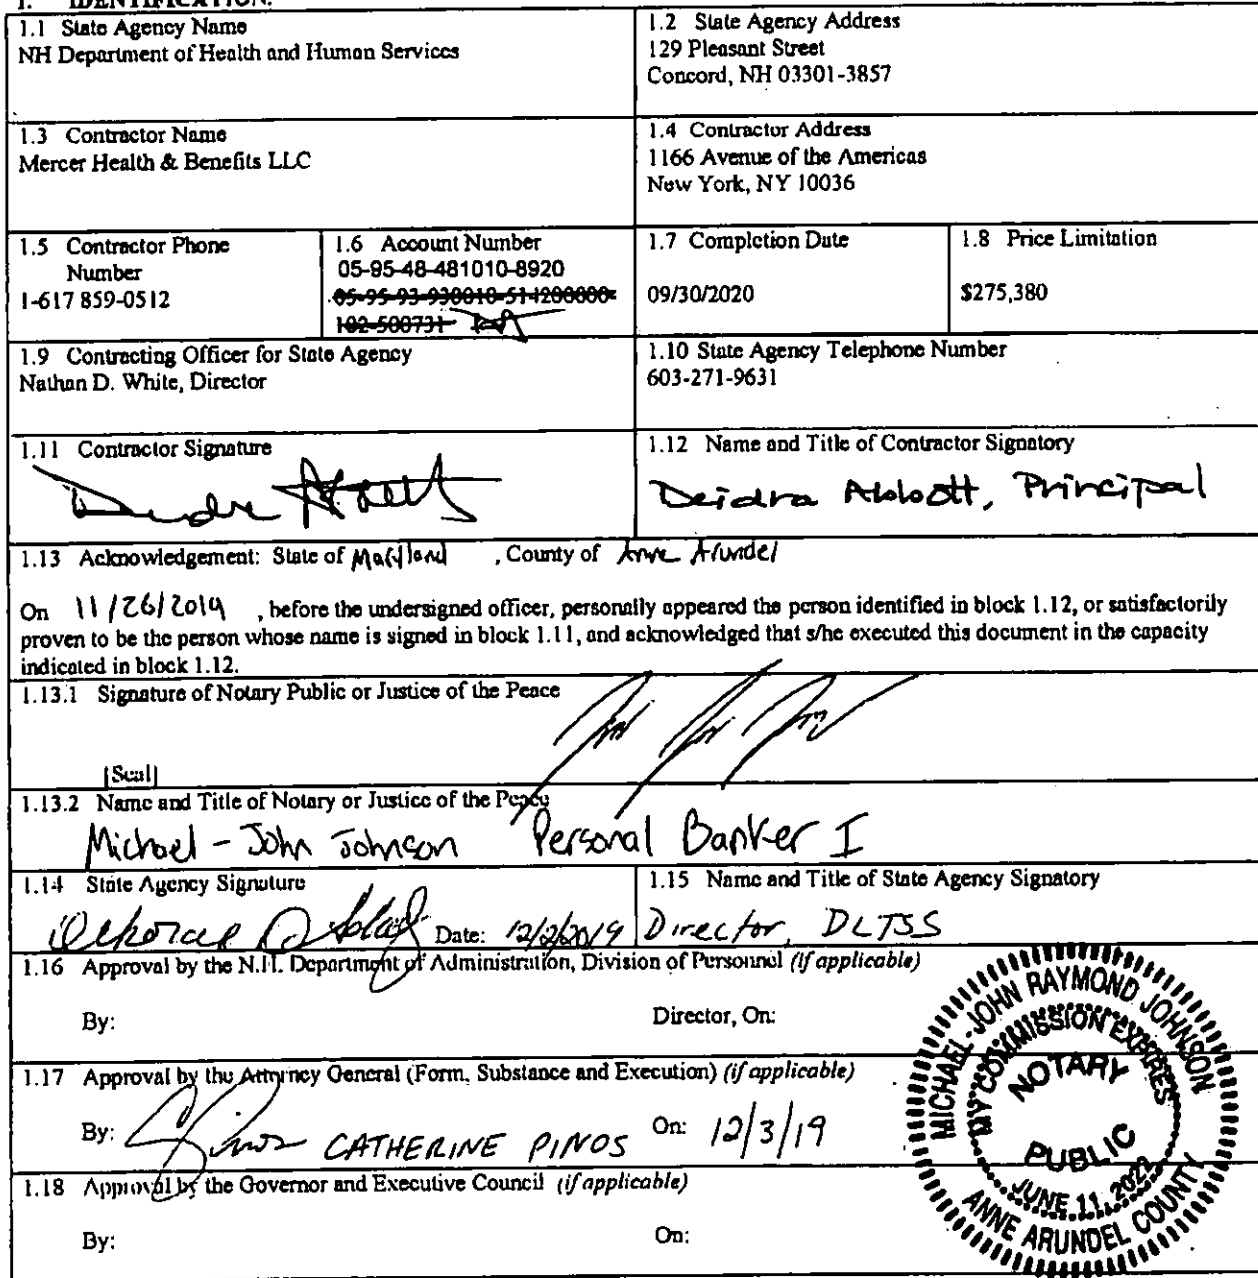 1. IDENTIFICATION.
1.1 State Agency Name
NH Department of Health and Human Services
1.2 State Agency Address
129 Pleasant Street
Concord, NH 03301-3857
1.3 Contractor Name
Mercer Health & Benefits LLC
1.4 Contractor Address
1166 Avenue of the Americas
New York, NY 10036
1.5 Contractor Phone
Number
1-617 859-0512
1.6 Account Number
05-95-48-481010-8920
05-95-93-930010-514200000-
102-500731
1.7 Completion Date
09/30/2020
1.8 Price Limitation
$275,380
1.9 Contracting Officer for State Agency
Nathan D. White, Director
1.10 State Agency Telephone Number
603-271-9631
1.11 Contractor Signature
1.12 Name and Title of Contractor Signatory
Deidra Abbott, Principal
1.13 Acknowledgement: State of Maryland , County of Anne Arundel
On 11/26/2019 , before the undersigned officer, personally appeared the person identified in block 1.12, or satisfactorily
proven to be the person whose name is signed in block 1.11, and acknowledged that s/he executed this document in the capacity
indicated in block 1.12.
1.13.1 Signature of Notary Public or Justice of the Peace
[Seal]
1.13.2 Name and Title of Notary or Justice of the Peace
Michael-John Johnson Personal Banker I
1.14 State Agency Signature
Date: 12/2/2019
1.15 Name and Title of State Agency Signatory
Director, DLTSS
1.16 Approval by the N.H. Department of Administration, Division of Personnel (if applicable)
By: Director, On:
1.17 Approval by the Attorney General (Form, Substance and Execution) (if applicable)
By: CATHERINE PINOS On: 12/3/19
1.18 Approval by the Governor and Executive Council (if applicable)
By: On:
MICHAEL-JOHN RAYMOND JOHNSON
MY COMMISSION EXPIRES
NOTARY
PUBLIC
JUNE 11, 2022
ANNE ARUNDEL COUNTY